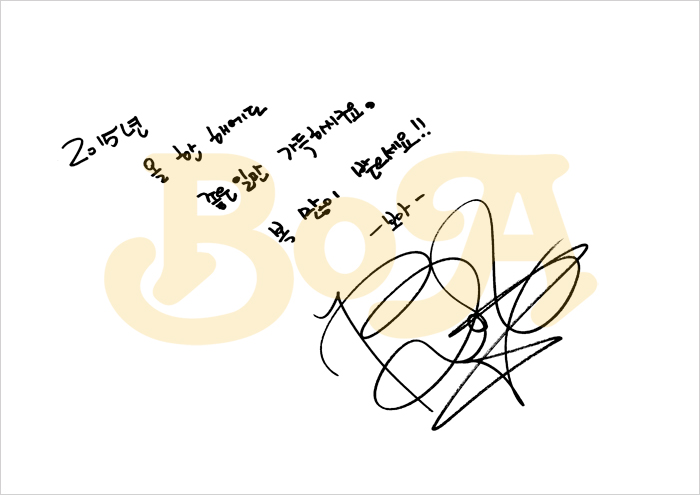 2015년
올 한 해에도
좋은 일만 가득하시구요.
복 많이 받으세요!!
-보아-
BoA